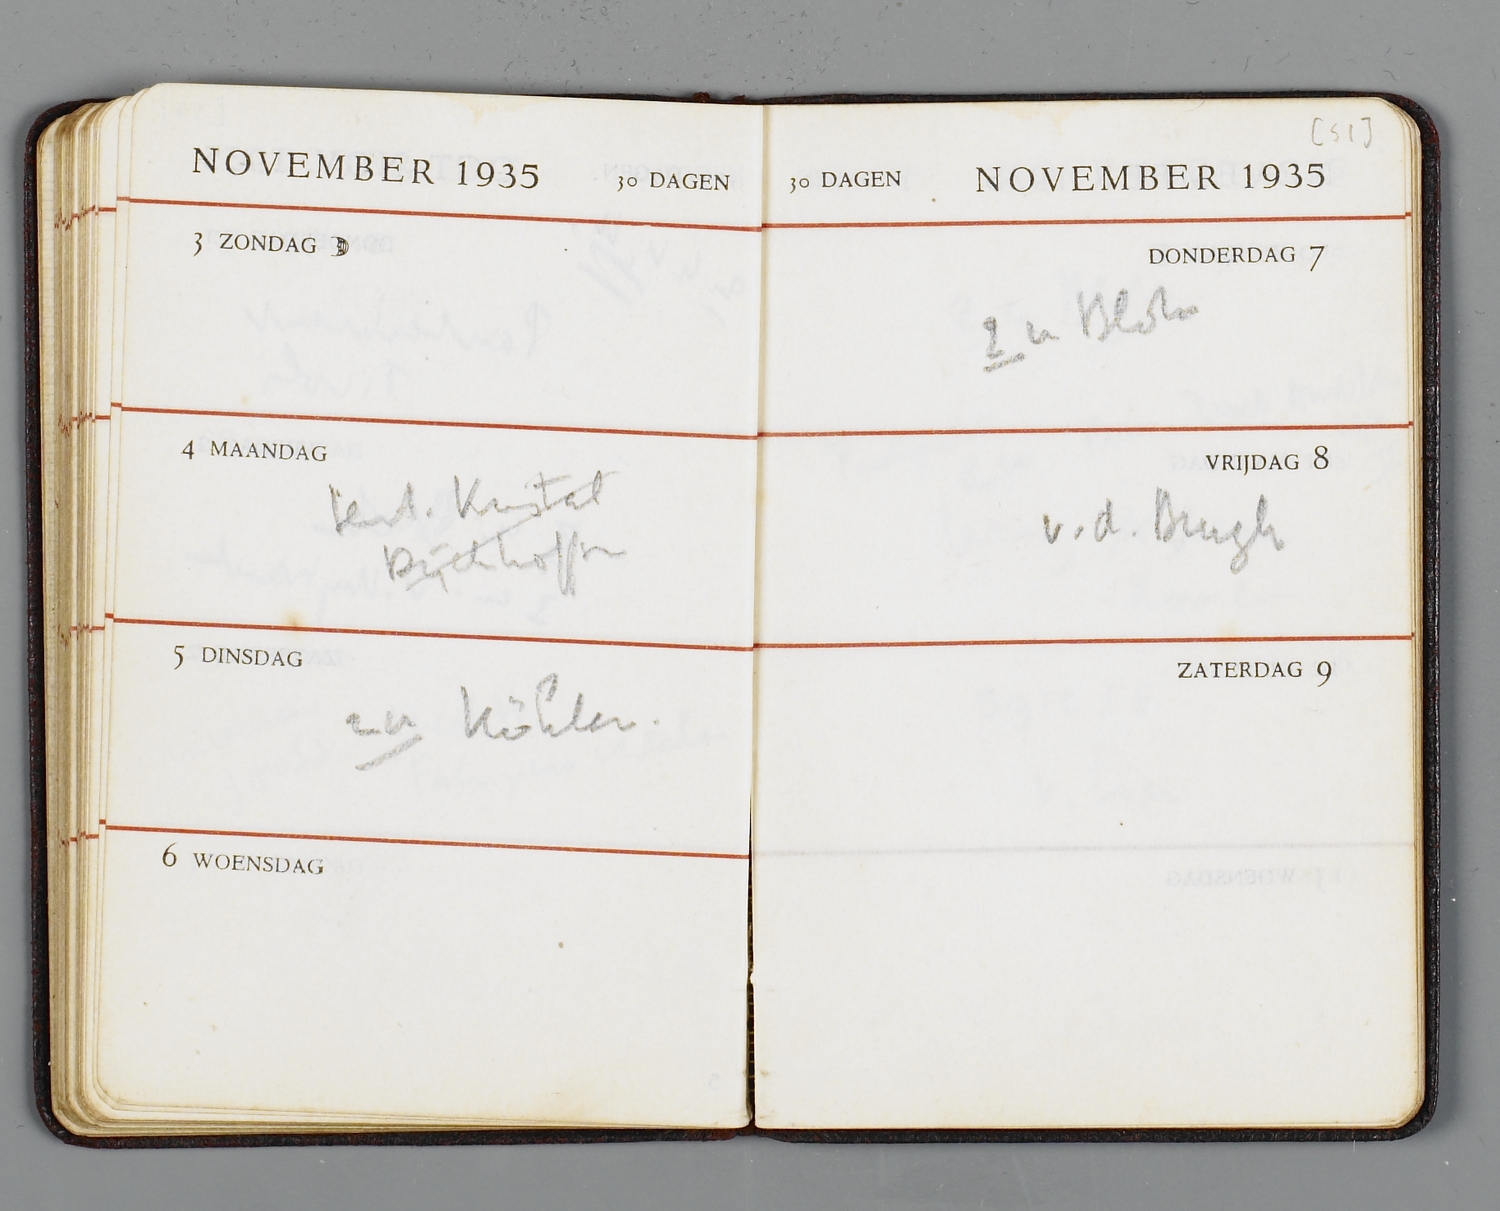 NOVEMBER 1935 30 DAGEN
3 ZONDAG
4 MAANDAG
Kristal
5 DINSDAG
Köhler.
6 WOENSDAG
[51]
30 DAGEN NOVEMBER 1935
DONDERDAG 7
2 u Blohm
VRIJDAG 8
v. d. Bergh
ZATERDAG 9